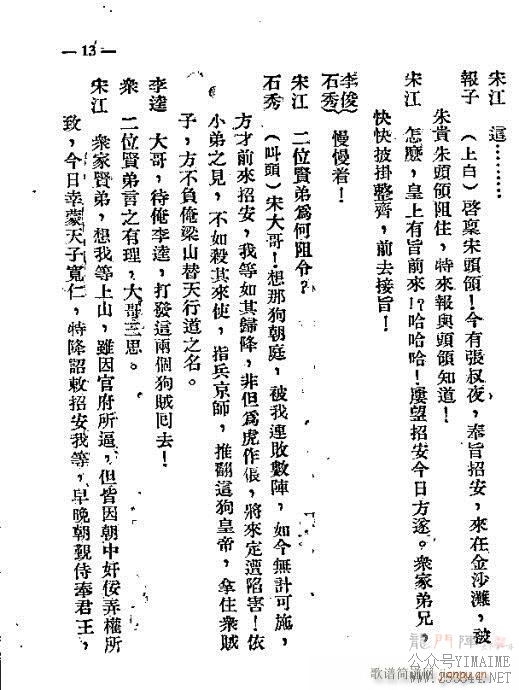 —13—
宋江　這………
報子　（上白）啓稟宋頭領！今有張叔夜，奉旨招安，來在金沙灘，被
朱貴朱頭領阻住，特來報與頭領知道！
宋江　怎麽，皇上有旨前來！？哈哈哈！屢望招安今日方遂。衆家弟兄，
快快披掛整齊，前去接旨！
李俊
石秀　慢慢着！
宋江　二位賢弟爲何阻令？
石秀　（叫頭）宋大哥！想那狗朝庭，被我連敗數陣，如今無計可施，
方才前來招安，我等如其歸降，非但爲虎作倀，將來定遭陷害！依
小弟之見，不如殺其來使，指兵京師，推翻這狗皇帝，拿住衆賊
子，方不負俺梁山替天行道之名。
李逵　大哥，待俺李逵，打發這兩個狗賊囘去！
衆　二位賢弟言之有理，大哥三思。
宋江　衆家賢弟，想我等上山，雖因官府所逼，但皆因朝中奸佞弄權所
致，今日幸蒙天子寬仁，特降詔敕招安我等，早晚朝覲侍奉君王，
公众号YIMAIME
歌谱简谱网